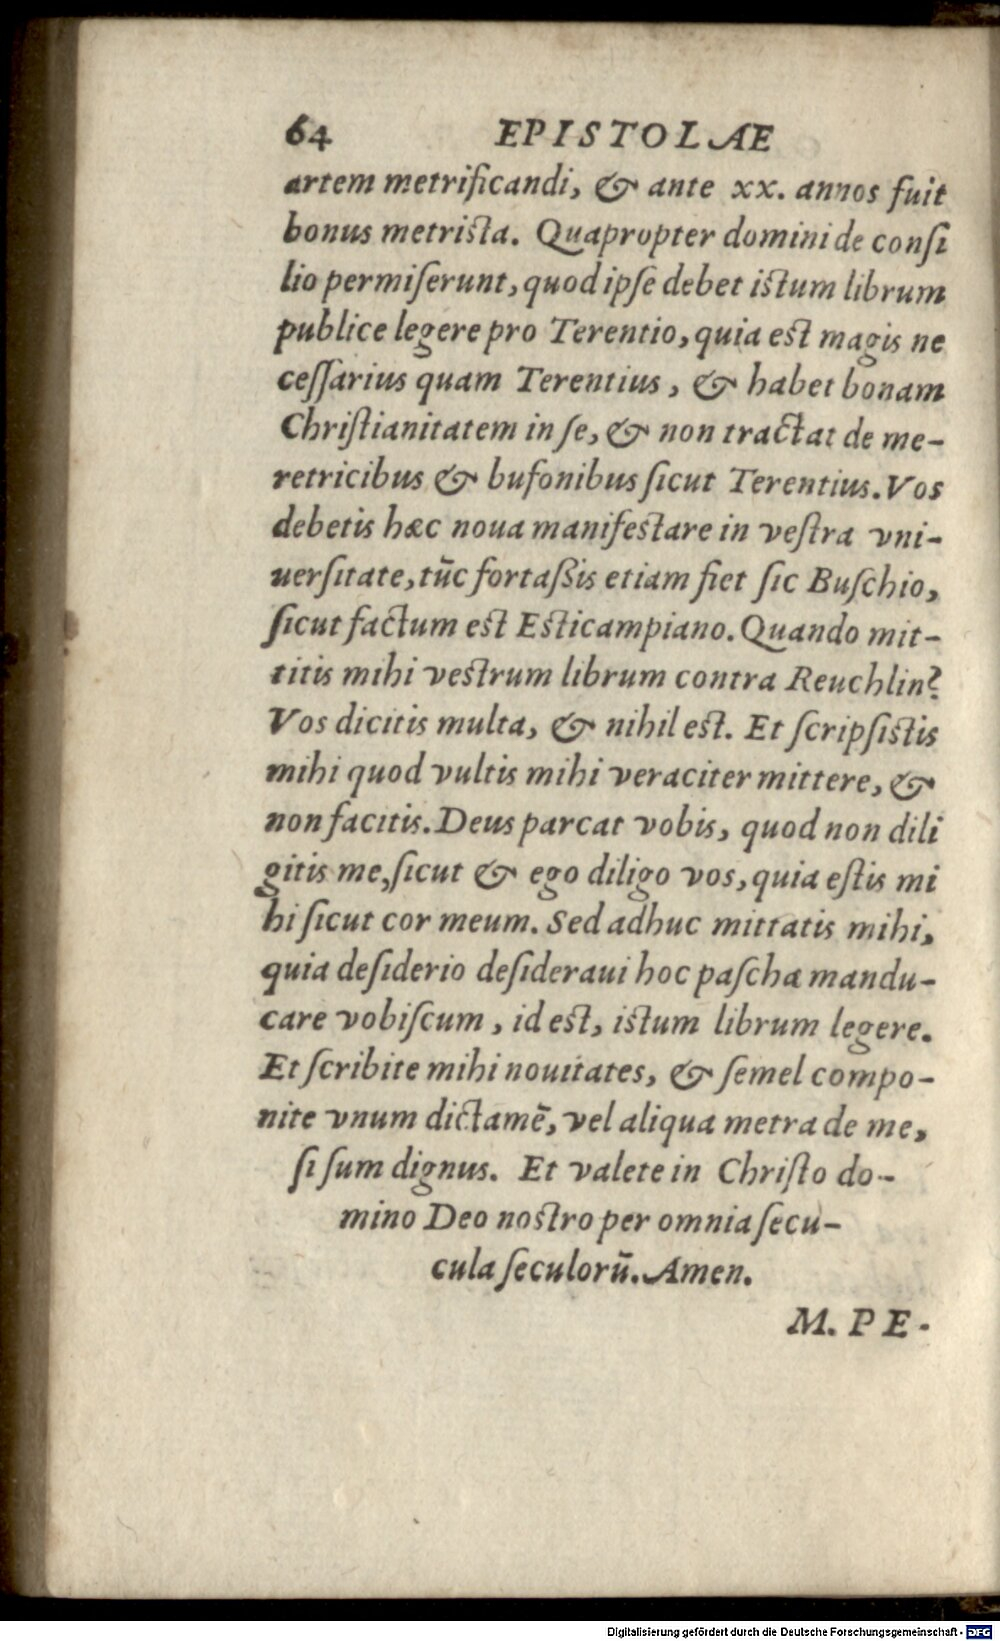 64 EPISTOLAE
artem metrificandi, & ante xx. annos fuit
bonus metrista. Quapropter domini de consi
lio permiserunt, quod ipse debet istum librum
publice legere pro Terentio, quia est magis ne
cessarius quam Terentius, & habet bonam
Christianitatem in se, & non tractat de me-
retricibus & bufonibus sicut Terentius. Vos
debetis hæc noua manifestare in vestra vni-
uersitate, tūc fortaßis etiam fiet sic Buschio,
sicut factum est Esticampiano. Quando mit-
titis mihi vestrum librum contra Reuchlin?
Vos dicitis multa, & nihil est. Et scripsistis
mihi quod vultis mihi veraciter mittere, &
non facitis. Deus parcat vobis, quod non dili
gitis me, sicut & ego diligo vos, quia estis mi
hi sicut cor meum. Sed adhuc mittatis mihi,
quia desiderio desideraui hoc pascha mandu-
care vobiscum, id est, istum librum legere.
Et scribite mihi nouitates, & semel compo-
nite vnum dictamē, vel aliqua metra de me,
si sum dignus. Et valete in Christo do-
mino Deo nostro per omnia secu-
cula seculorū. Amen.
M. PE-
Digitalisierung gefördert durch die Deutsche Forschungsgemeinschaft - DFG